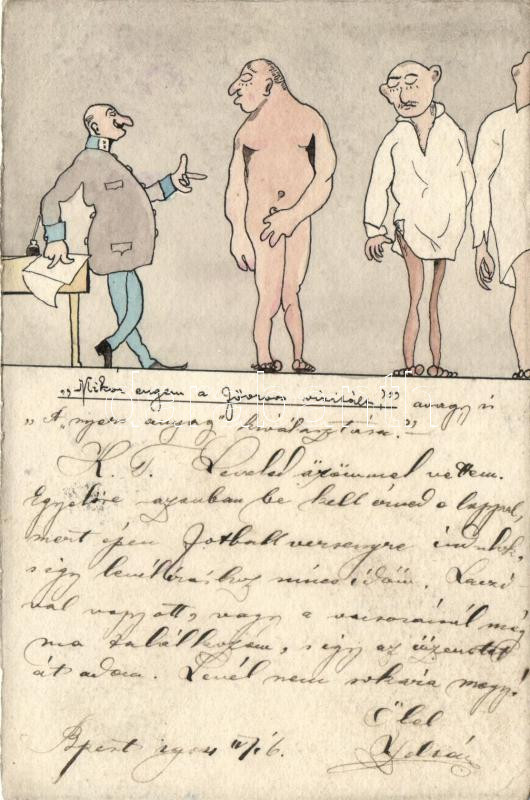 „Mikor engem a Főorvos vizitált” avagy is
„A „nyers anyag” kiválasztása.”
K. T. Leveled örömmel vettem.
Egyelőre azonban be kell érned e lappal,
mert épen fotball versenyre indulok,
s így levélíráshoz nincs időm. Laczi
val vagyott, vagy a vacsoránál még
ma találkozom, s így az üzenetet
át adom. Levél nem sokára megy!
Ölel
Bpest 1904 IV/16.